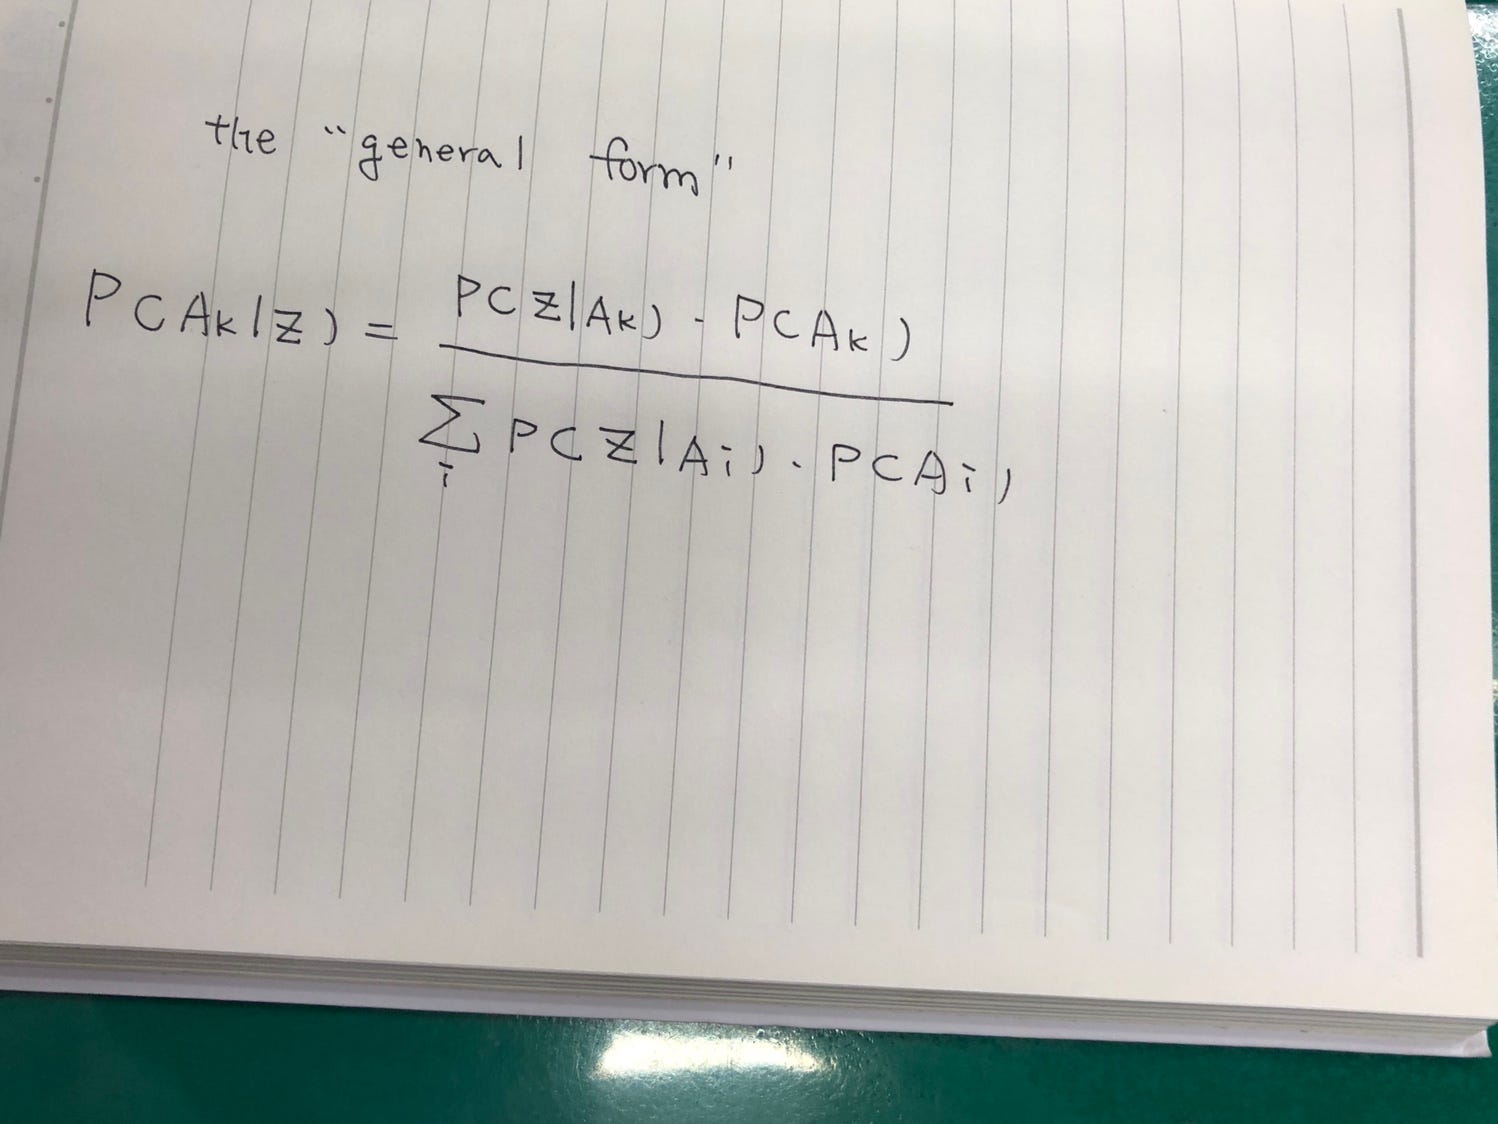 the "general form"
P(Ak|Z) = P(Z|Ak) · P(Ak)
Σi P(Z|Ai) · P(Ai)